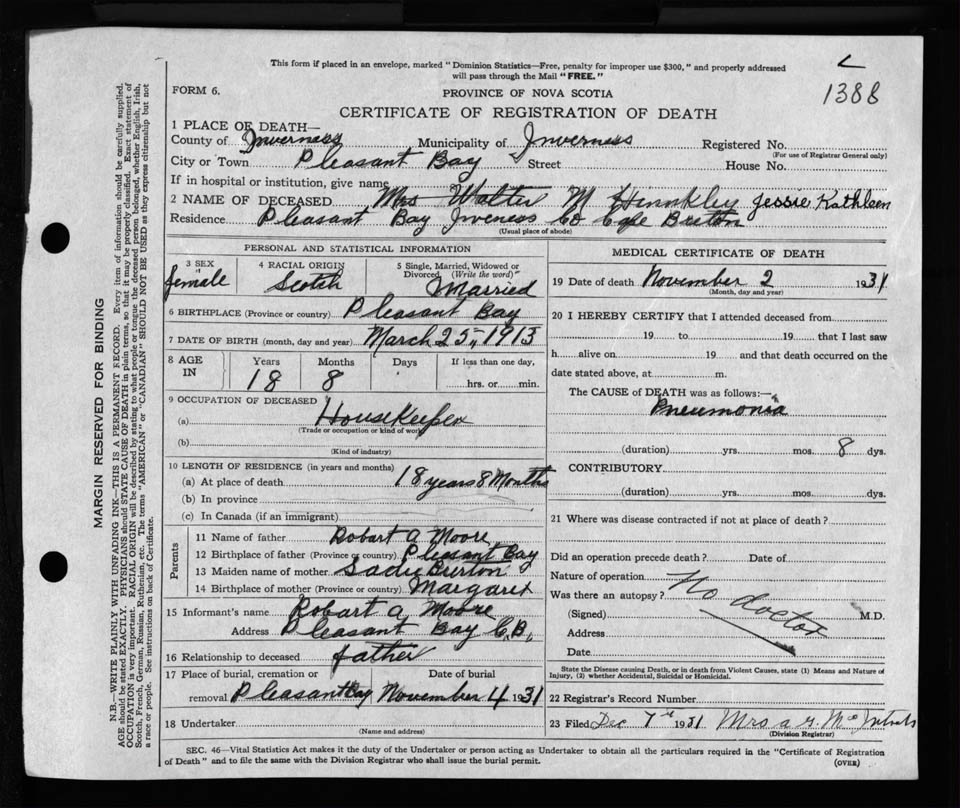 This form if placed in an envelope, marked "Dominion Statistics—Free, penalty for improper use $300," and properly addressed
will pass through the Mail "FREE."
L
1388
FORM 6.
PROVINCE OF NOVA SCOTIA
CERTIFICATE OF REGISTRATION OF DEATH
1 PLACE OF DEATH—
County of Inverness Municipality of Inverness Registered No.
(For use of Registrar General only)
City or Town Pleasant Bay Street House No.
If in hospital or institution, give name
2 NAME OF DECEASED Mrs Walter M Hinnkley Jessie Kathleen
Residence Pleasant Bay Inveness Co Cape Breton
(Usual place of abode)
PERSONAL AND STATISTICAL INFORMATION
3 SEX female
4 RACIAL ORIGIN Scotch
5 Single, Married, Widowed or Divorced (Write the word) Married
6 BIRTHPLACE (Province or country) Pleasant Bay
7 DATE OF BIRTH (month, day and year) March 25, 1913
8 AGE IN Years 18 Months 8 Days If less than one day, hrs. or min.
9 OCCUPATION OF DECEASED
(a) HouseKeeper
(Trade or occupation or kind of work)
(b)
(Kind of industry)
10 LENGTH OF RESIDENCE (in years and months)
(a) At place of death 18 years 8 Months
(b) In province
(c) In Canada (if an immigrant)
Parents
11 Name of father Robart A Moore
12 Birthplace of father (Province or country) Pleasant Bay
13 Maiden name of mother Sadie Burton
14 Birthplace of mother (Province or country) Margaret
15 Informant's name Robart A Moore
Address Pleasant Bay C.B.,
16 Relationship to deceased father
17 Place of burial, cremation or removal Pleasant Bay
Date of burial November 4 1931
18 Undertaker
(Name and address)
MEDICAL CERTIFICATE OF DEATH
19 Date of death November 2 1931
(Month, day and year)
20 I HEREBY CERTIFY that I attended deceased from
19 to 19 that I last saw
h alive on 19 and that death occurred on the
date stated above, at m.
The CAUSE of DEATH was as follows:
Pneumonia
(duration) yrs. mos. 8 dys.
CONTRIBUTORY
(duration) yrs. mos. dys.
21 Where was disease contracted if not at place of death?
Did an operation precede death? Date of
Nature of operation
Was there an autopsy?
No doctor
(Signed) M.D.
Address
Date
State the Disease causing Death, or in death from Violent Causes, state (1) Means and Nature of
Injury, (2) whether Accidental, Suicidal or Homicidal.
22 Registrar's Record Number
23 Filed Dec 7th 1931 Mrs A
(Division Registrar)
SEC. 46—Vital Statistics Act makes it the duty of the Undertaker or person acting as Undertaker to obtain all the particulars required in the "Certificate of Registration
of Death" and to file the same with the Division Registrar who shall issue the burial permit.
(OVER)
MARGIN RESERVED FOR BINDING
N.B.—WRITE PLAINLY WITH UNFADING INK—THIS IS A PERMANENT RECORD. Every item of information should be carefully supplied.
AGE should be stated EXACTLY. PHYSICIANS should STATE CAUSE OF DEATH in plain terms, so that it may be properly classified. Exact statement of
OCCUPATION is very important. RACIAL ORIGIN will be described by stating to what people or tongue the deceased person belonged, whether English, Irish,
Scotch, French, German, Russian, Ruthenian, etc. The terms "AMERICAN" or "CANADIAN" SHOULD NOT BE USED as they express citizenship but not
a race or people. See instructions on back of Certificate.